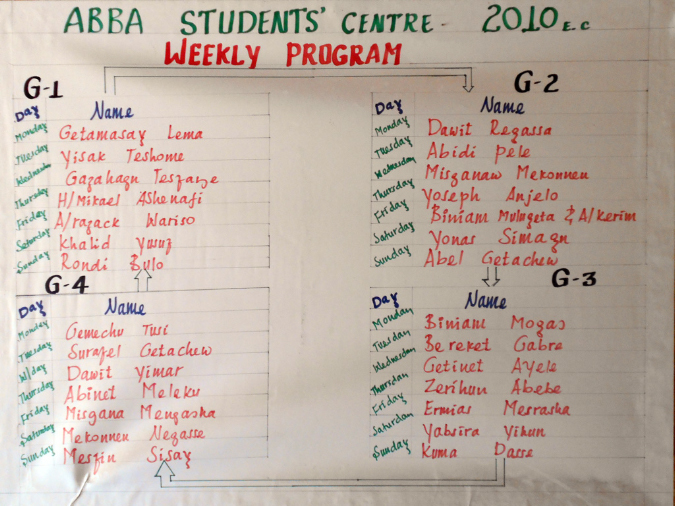 ABBA STUDENTS' CENTRE - 2010 E.C
WEEKLY PROGRAM
G-1
Day Name
Monday Getamasay Lema
Tuesday Yisak Teshome
Wednesday Gazahagn Tesfaye
Thursday H/Mikael Ashenafi
Friday A/razack Wariso
Saturday Khalid Yusuf
Sunday Rondi Bulo
G-2
Day Name
Monday Dawit Regassa
Tuesday Abidi Pele
Wednesday Misganaw Mekonnen
Thursday Yoseph Anjelo
Friday Biniam Mulugeta & A/kerim
Saturday Yonas Simagn
Sunday Abel Getachew
G-3
Day Name
Monday Biniam Mogas
Tuesday Bereket Gabre
Wednesday Getinet Ayele
Thursday Zerihun Abebe
Friday Ermias Mesrasha
Saturday Yabsira Yihun
Sunday Kuma Dasse
G-4
Day Name
Monday Gemechu Tusi
Tuesday Surafel Getachew
W/day Dawit Yimar
Thursday Abinet Meleku
Friday Misgana Mengasha
Saturday Mekonnen Negasse
Sunday Mesfin Sisay